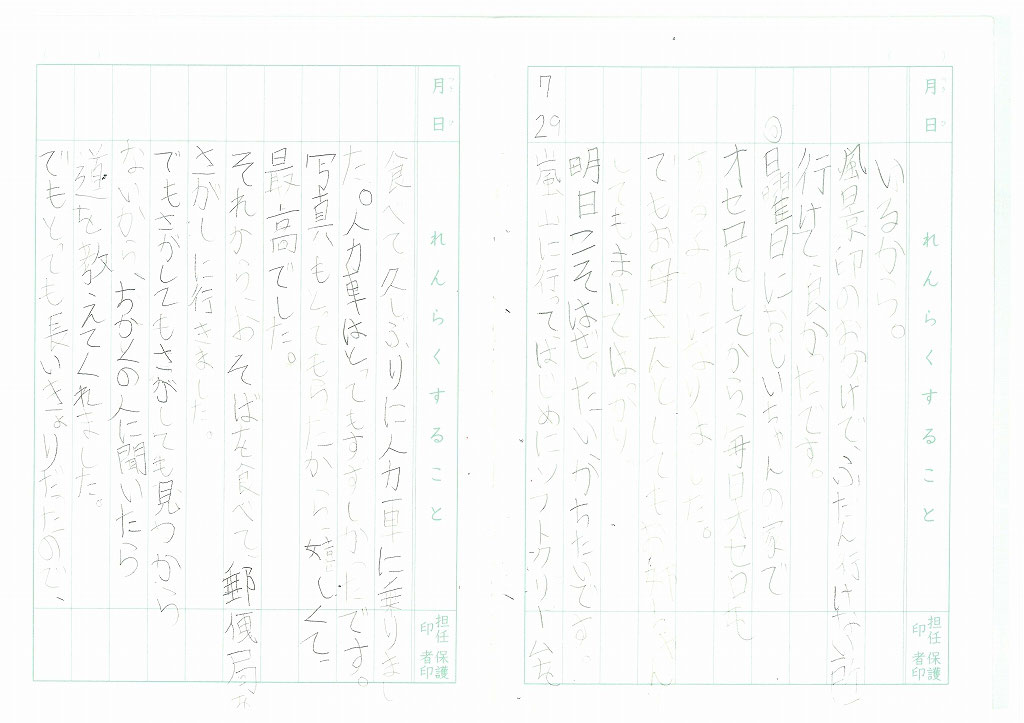 月日
れんらくすること
担任印
保護者印
いるから。
風景印のおかげで、ふだん行けない所
行けて良かったです。
◎日曜日におじいちゃんの家で
オセロをしてから、毎日オセロを
するようになりました。
でもお母さんとしてもお
してもまけてばっかり、
明日こそはぜったいかちたいです。
7 29
嵐山に行ってはじめにソフトクリームを
月日
れんらくすること
担任印
保護者印
食べて久しぶりに人力車に乗りまし
た。人力車はとってもすずしかったです。
写真もとってもらったから嬉しくて、
最高でした。
それから、おそばを食べて、郵便局を
さがしに行きました。
でもさがしてもさがしても見つから
ないから、おかくの人に聞いたら
道を教えてくれました。
でもとっても長いきょりだったので、